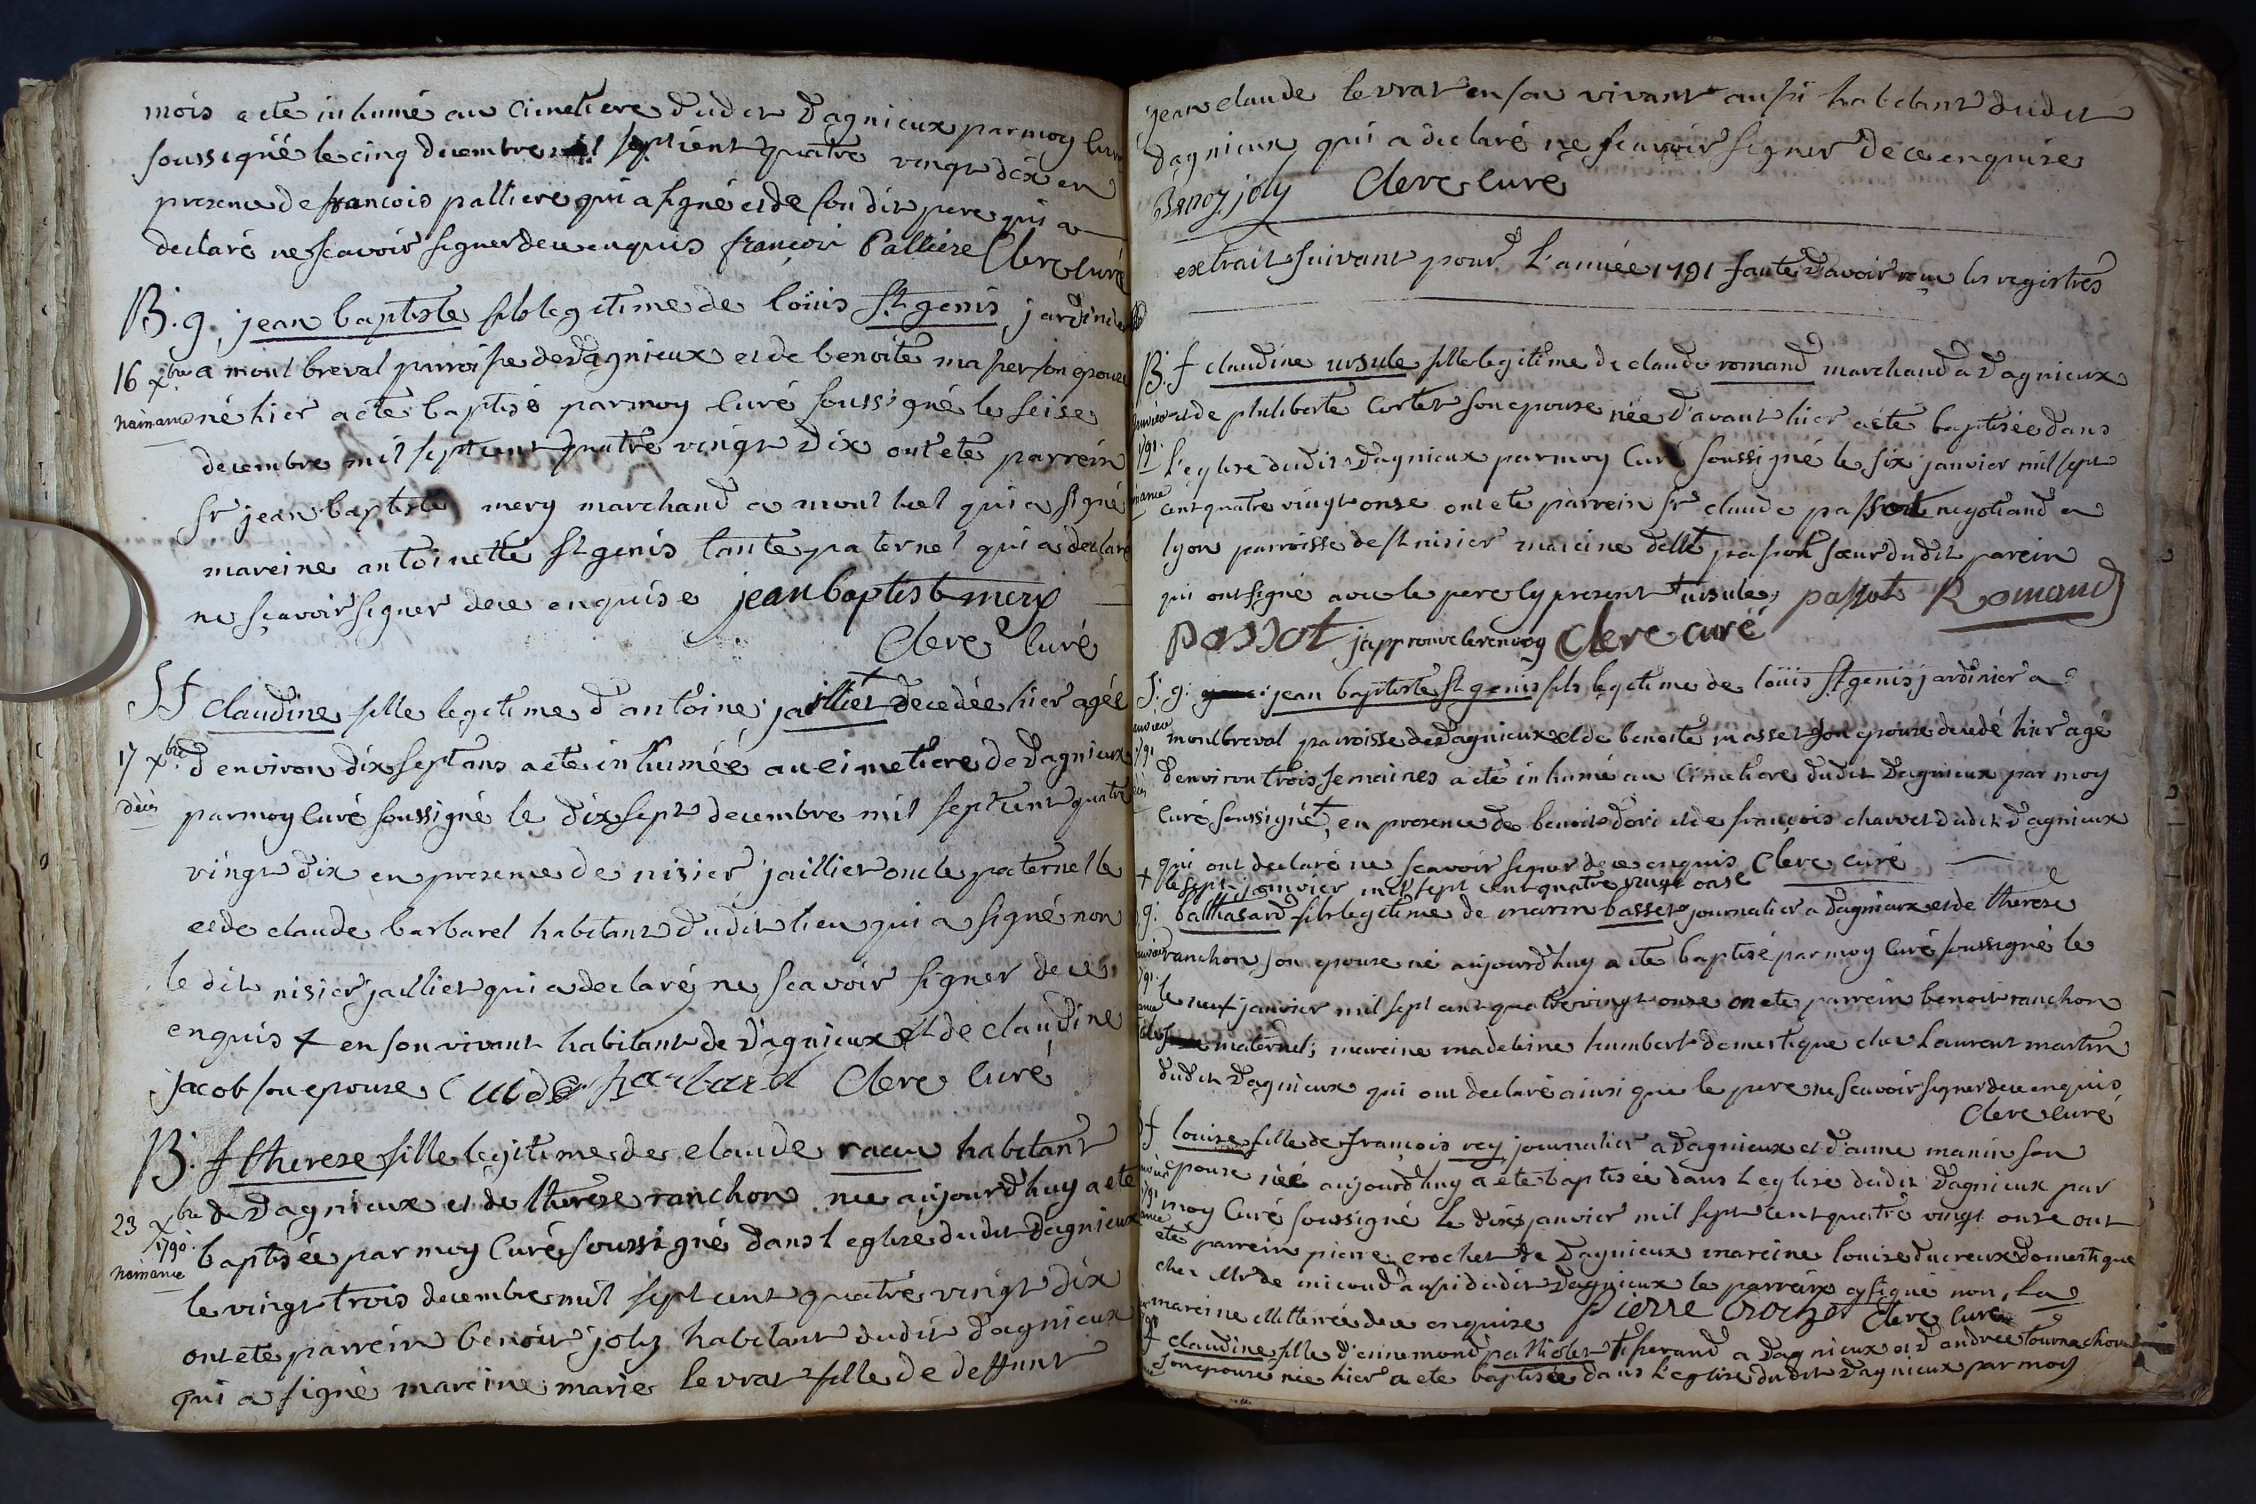 mois a ete inhumé au cimetiere dudit Dagnieux par moy curé
soussigné le cinq decembre mil sept cent quatre vingt dix en
presence de francois palliere qui a signé et de son dit pere qui a
declaré ne scavoir signer de ce enquis françois Palliere Clerc curé
B. g. jean baptiste fils legitime de loüis St genis jardinier
16 xbre a mont breval parroisse de Dagnieux et de benoite masson epouse
naisance né hier a ete baptisé par moy curé soussigné le seise
decembre mil sept cent quatre vingt dix ont ete parrein
sr jean baptiste mery marchand a montluel qui a signé
mareine antoinette St genis tante paternel qui a declaré
ne sçavoir signer de ce enquise jean baptiste mery
Clerc curé
S f claudine fille legitime d'antoine jaillier decedée hier agée
17 xbre d'environ dix sept ans a ete inhumée au cimetiere de Dagnieux
décés par moy curé soussigné le dix sept decembre mil sept cent quatre
vingt dix en presence de nisier jaillier oncle paternelle
et de claude barbarel habitant dudit lieu qui a signé non
le dit nisier jaillier qui a declaré ne scavoir signer de ce
enquis + en son vivant habitant de Dagnieux et de claudine
jacob son epouse Claude barbarel Clerc curé
B. f therese fille legitime de claude racu habitant
23 xbre de Dagnieux et de therese ranchon née aujourd'huy a ete
1790 baptisée par moy Curé soussigné dans l'eglise dudit Dagnieux
naisance le vingt trois decembre mil sept cent quatre vingt dix
ont ete parrein benoit joly habitant dudit Dagnieux
qui a signé mareine marie levrat fille de deffunt
jean claude levrat en son vivant aussi habitant dudit
Dagnieux qui a declaré ne scavoir signer de ce enquise
Benoy joly Clerc curé
extrait suivant pour L'année 1791 faute d'avoir reçu les registres
B. f claudine ursule fille legitime de claude romand marchand a Dagnieux
et de philiberte Cortet son epouse née d'avant hier a ete baptisée dans
1791 L'eglise dudit Dagnieux par moy Curé soussigné le six janvier mil sept
cent quatre vingt onse ont ete parrein sr claude passot negotiand a
lyon parroisse de St nisier mareine delle passot sœur dudit parein
qui ont signé avec le pere cy present + ursule passot Romand
Passot japprouve le renvoy Clerc curé
S. g. jean baptiste St genis fils legitime de loüis St genis jardinier a
montbreval parroisse de Dagnieux et de benoite masset son epouse decedé hier agé
d'environ trois semaines a ete inhumé au Cimetiere dudit Dagnieux par moy
Curé soussigné + en presence de benoit dori et de françois charvet dudit Dagnieux
qui ont declaré ne scavoir signer de ce enquis Clerc curé
+ le sept janvier mil sept cent quatre vingt onse
g. balthasard fils legitime de marin basset journalier a Dagnieux et de therese
ranchon son epouse né aujourd'huy a ete baptisé par moy Curé soussigné le
le neuf janvier mil sept cent quatre vingt onse on ete parrein benoit ranchon
maternel; mareine madeleine humbert domestique chez Laurent martin
dudit Dagnieux qui ont declaré ainsi que le pere ne scavoir signer de ce enquis
Clerc curé
f louise fille de françois rey journalier a Dagnieux et d'anne manin son
epouse née aujourd'huy a ete baptisée dans L'eglise dudit Dagnieux par
moy Curé soussigné Le dixs janvier mil sept cent quatre vingt onse ont
ete parrein pierre crochet de Dagnieux mareine louise ducreux domestique
chez Mr de micoud aussi dudit Dagnieux le parrein a signé non, La
mareine illitterée de ce enquise Pierre Crochet Clerc Curé
f claudine fille d'ennemond palliolet tisserand a Dagnieux et d'andrée tournachon
son epouse née hier a ete baptisée dans L'eglise dudit Dagnieux par moy